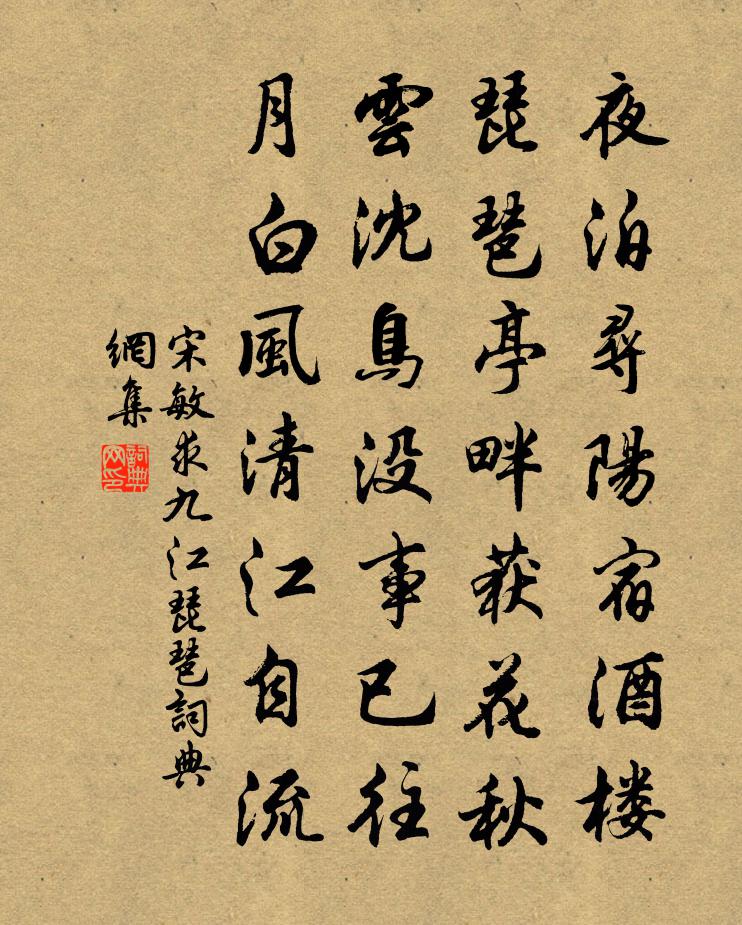 夜泊尋陽宿酒楼
琵琶亭畔荻花秋
雲沈鳥没事已往
月白風清江自流
宋敏求九江琵琶詞典
網集
詞典
网印